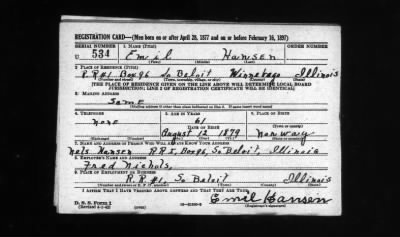 REGISTRATION CARD—(Men born on or after April 28, 1877 and on or before February 16, 1897)
SERIAL NUMBER 1. NAME (Print) ORDER NUMBER
U 534 Emil Hansen
(First) (Middle) (Last)
2. PLACE OF RESIDENCE (Print)
R.R#1 Box 96 So Beloit Winnebago Illinois
(Number and street) (Town, township, village, or city) (County) (State)
[THE PLACE OF RESIDENCE GIVEN ON THE LINE ABOVE WILL DETERMINE LOCAL BOARD
JURISDICTION; LINE 2 OF REGISTRATION CERTIFICATE WILL BE IDENTICAL]
3. MAILING ADDRESS
Same
(Mailing address if other than place indicated on line 2. If same insert word same)
4. TELEPHONE 5. AGE IN YEARS 6. PLACE OF BIRTH
none 61
DATE OF BIRTH
August 12 1879 Norway
7. NAME AND ADDRESS OF PERSON WHO WILL ALWAYS KNOW YOUR ADDRESS
Nels Hansen R.R 1, Box 96, So Beloit, Illinois
8. EMPLOYER'S NAME AND ADDRESS
Fred Nichols,
9. PLACE OF EMPLOYMENT OR BUSINESS
R.R.#1, So Beloit Illinois
I AFFIRM THAT I HAVE VERIFIED ABOVE ANSWERS AND THAT THEY ARE TRUE.
D. S. S. FORM 1
Emil Hansen
(Registrant's signature)